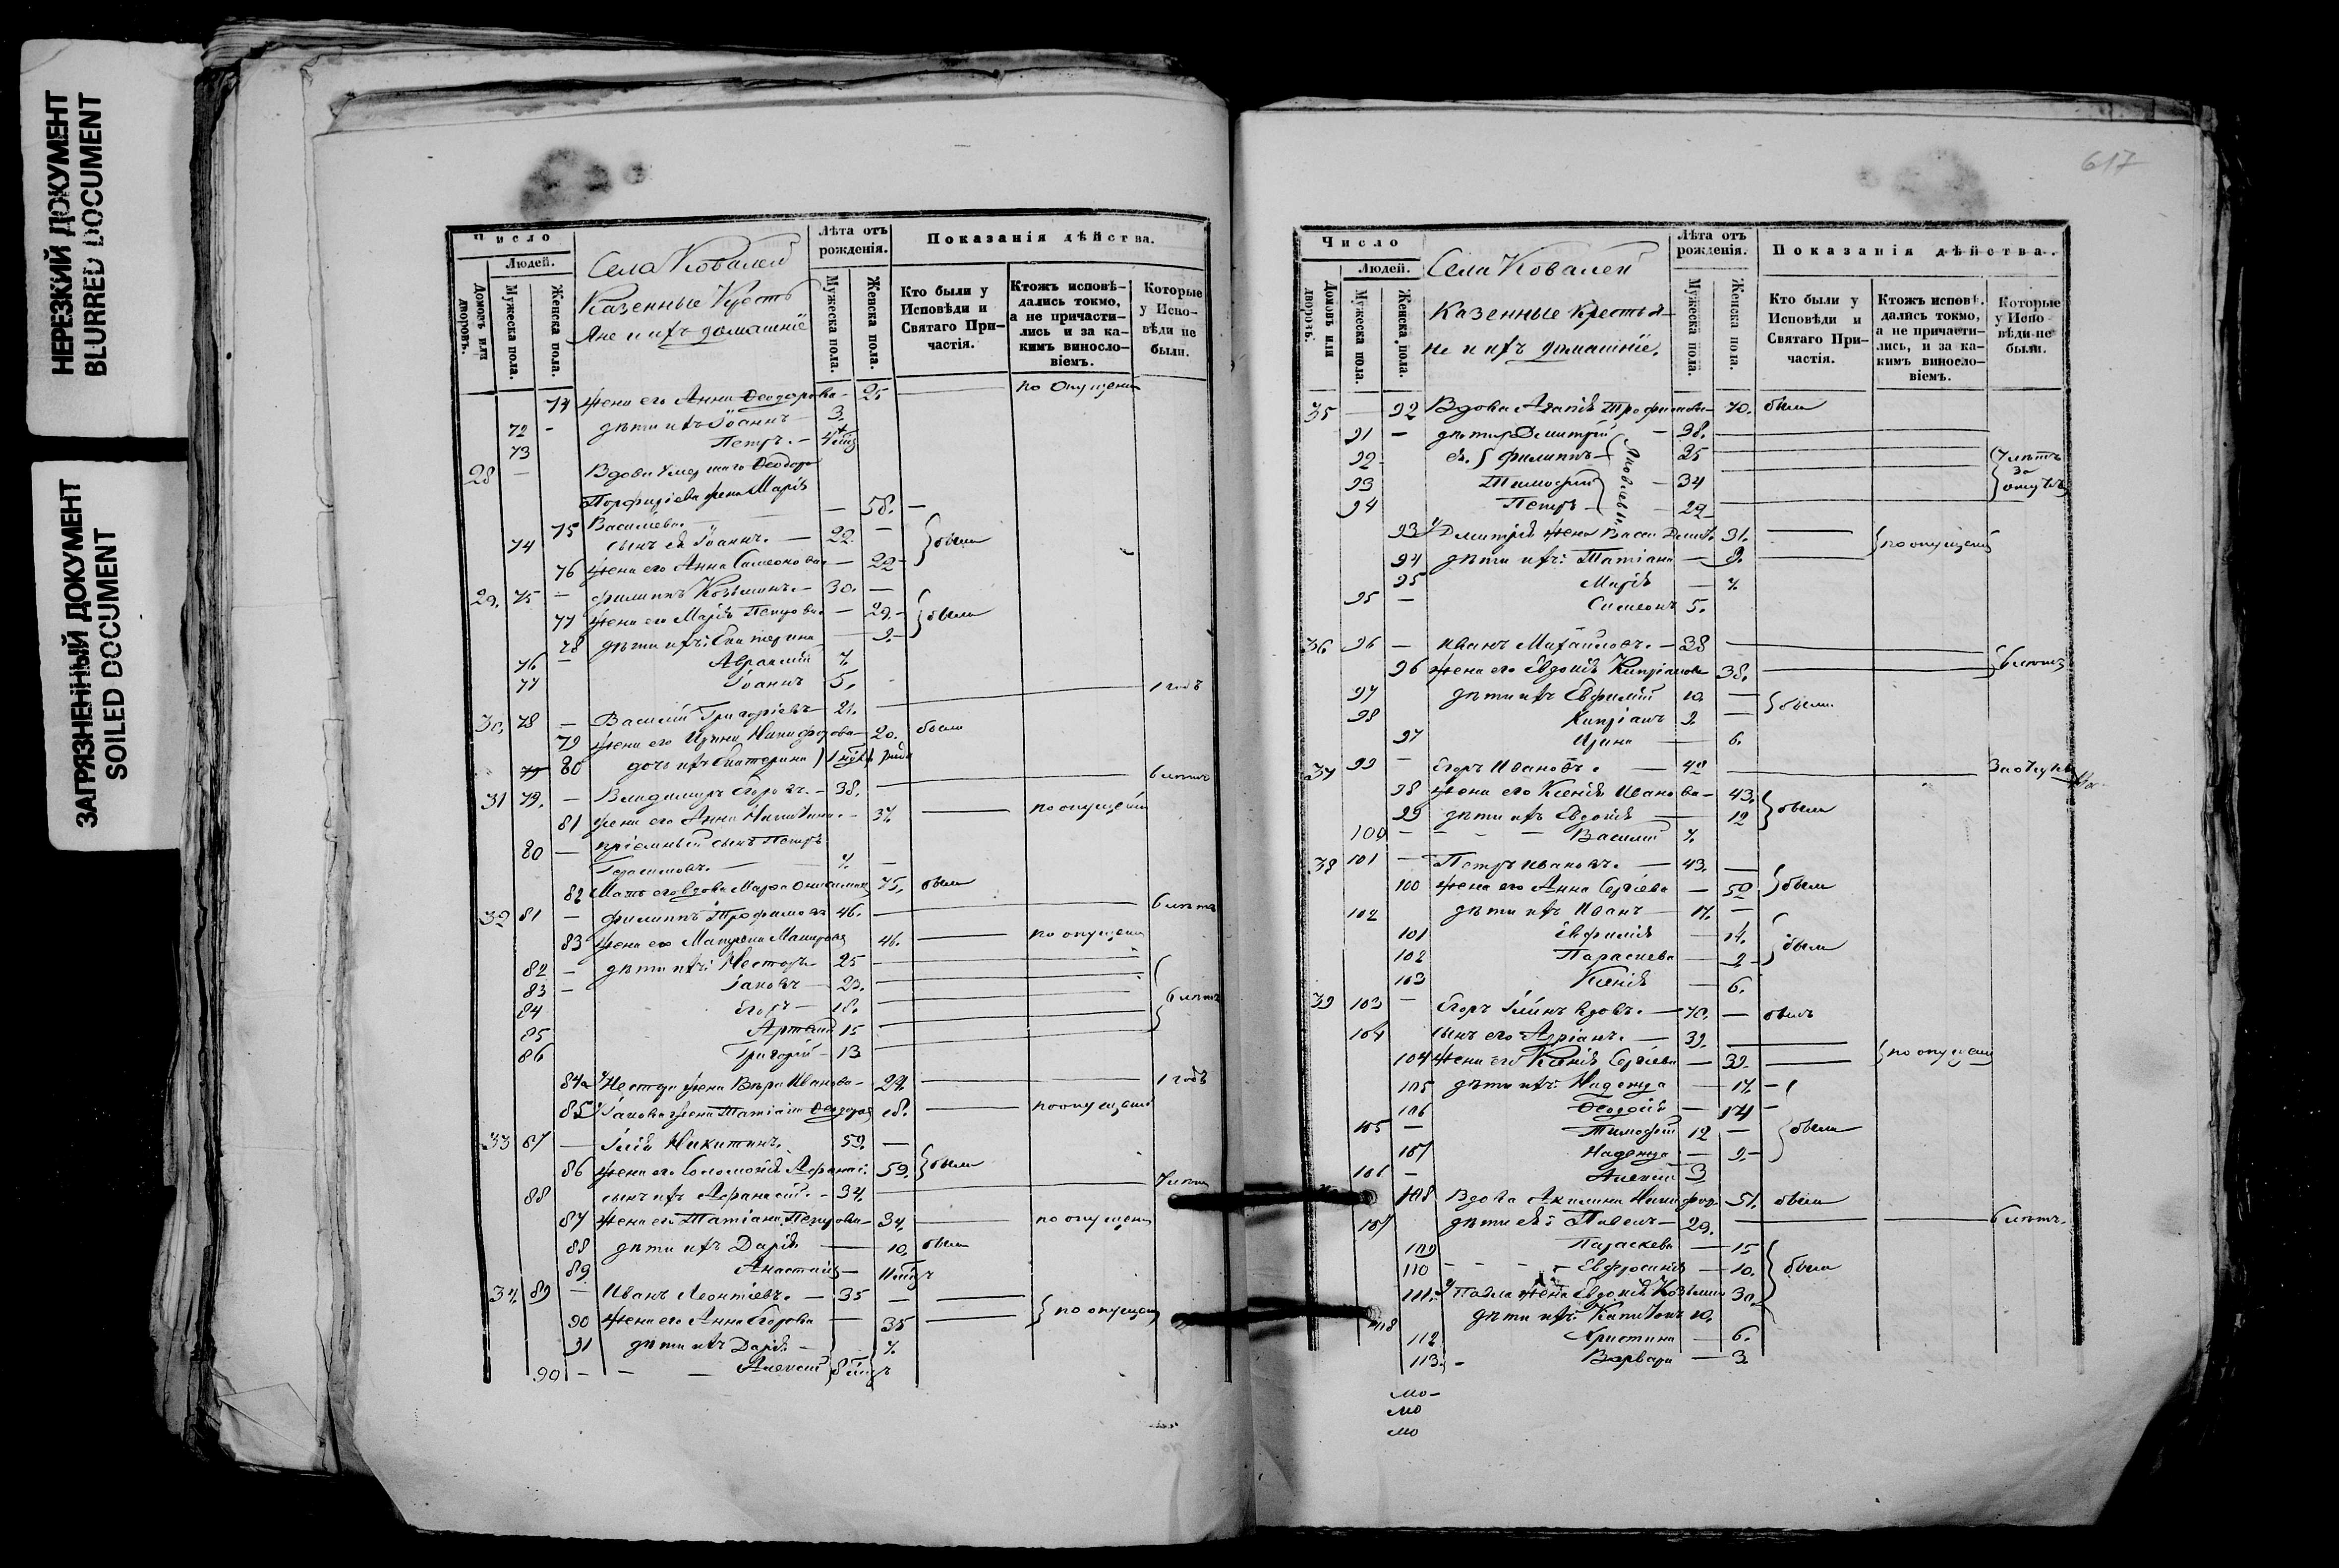 НЕРЕЗКИЙ ДОКУМЕНТ
BLURRED DOCUMENT
ЗАГРЯЗНЕННЫЙ ДОКУМЕНТ
SOILED DOCUMENT
Число
Людей.
Домовъ или дворовъ.
Мужеска пола.
Женска пола.
Села Ковалей
Казенные Кресть
яне и ихъ домашніе
Лѣта отъ рожденія.
Мужеска пола.
Женска пола.
Показанія дѣйства.
Кто были у Исповѣди и Святаго Причастія.
Ктожъ исповѣдались токмо, а не причастились и за какимъ винословіемъ.
Которые у Исповѣди не были.
71 жена его Анна Феодорова 25 по опущенію
72 - дѣти ихъ Іоаннъ 3.
73 Петръ.
28 — Вдова умершаго Феодора
Порфиріева жена Марія
75 Васильева. — 58. —
74 сынъ ея Іоаннъ. — 22 — были
76 жена его Анна Симеонова — 22 -
29. 75 — Филиппъ Козьминъ. - 30. —
77 жена его Марія Петрова — 29. - были
78 дѣти ихъ: Екатерина — 9. -
76 — Авраамій 7.
77 Іоаннъ 5.
30. 78 — Василій Григоріевъ — 21. 1 годъ
79 жена его Ирина Никифорова — 20. были
80 дочь ихъ Екатерина
31 79. — Владимиръ Егоровъ. - 38. 6 лѣтъ
81 жена его Анна Никитина. - 37. по опущенію
80 — пріемный сынъ Петръ
Герасимовъ. — 7. —
82 Мать его вдова Марфа 75. были
32 81 — Филиппъ Трофимовъ 46. 6 лѣтъ
83 жена его Матрона 46. по опущенію
82 — дѣти ихъ: Несторъ. 25
83 — Іаковъ 23.
84 Егоръ 18. 6 лѣтъ
85 15
86 Григорій - 13
84 Нестора жена Вѣра Иванова - 22. 1 годъ
85 Іакова жена Татіана Феодорова 18. по опущенію
33 87 — Илія Никитинъ. 59. —
86 жена его Соломонія 59. были
88 сынъ ихъ Афанасій. - 34.
87 жена его Татіана Петрова 34. по опущенію
88 дѣти ихъ Дарія — 10. были
89 Анастасія —
34. 89 — Иванъ Леонтіевъ. — 35 —
90 жена его Анна Егорова — 35 по опущенію
91 дѣти ихъ Дарія. — 7.
90 - - — Алексій
617
Число
Людей.
Домовъ или дворовъ.
Мужеска пола.
Женска пола.
Села Ковалей
Казенные Крестья-
не и ихъ домашніе.
Лѣта отъ рожденія.
Мужеска пола.
Женска пола.
Показанія дѣйства.
Кто были у Исповѣди и Святаго Причастія.
Ктожъ исповѣдались токмо, а не причастились, и за какимъ винословіемъ.
Которые у Исповѣди не были.
35 — 92 Вдова Агапія Трофимова — 70. были
91 — дѣти ея Димитрій — 38.
92 - Филиппъ Яковлевы 35 7 лѣтъ за
93 Тимофей — 34
94 Петръ — 29
93 Димитрія жена 31. по опущенію
94 дѣти ихъ: Татіана — 9.
95 Марія — 7.
95 — Симеонъ 5.
36 96 — Иванъ Михайловъ. — 38 6 лѣтъ
96 жена его Евдокія Кипріанова 38.
97 дѣти ихъ Евфимій 10. — были
98 Кипріанъ 9 —
97 Ирина — 6.
37 99 — Егоръ Ивановъ. — 42
98 жена его Ксенія Иванова — 43. были
99 дѣти ихъ Евдокія — 12
100 — Василій 7.
38 101 — Петръ Ивановъ. — 43. —
100 жена его Анна Сергіева — 50 были
102 дѣти ихъ Иванъ — 17. —
101 Евфимія — 14. были
102 Параскева — 9 -
103 Ксенія — 6.
39 103 — Егоръ Іминъ вдовъ. — 70. — былъ
104 сынъ его Адріанъ. — 39. —
104 жена его Ксенія Сергіева — 39. по опущенію
105 дѣти ихъ: Надежда — 17. -
106 Феодосія — 14 -
105 — Тимофей 12 — были
107 Надежда — 9. -
106 — Алексій 3
108 Вдова Акилина Никифор. 51. были
107 дѣти ея: Павелъ — 29. 6 лѣтъ.
109 Параскева — 15
110 - - - Евфросинія — 10. были
111. Павла жена Евдокія Козьмина 30.
118 дѣти ихъ: Капитонъ 10.
112 Христина — 6.
113. - Варвара — 3
мо-
мо
мо